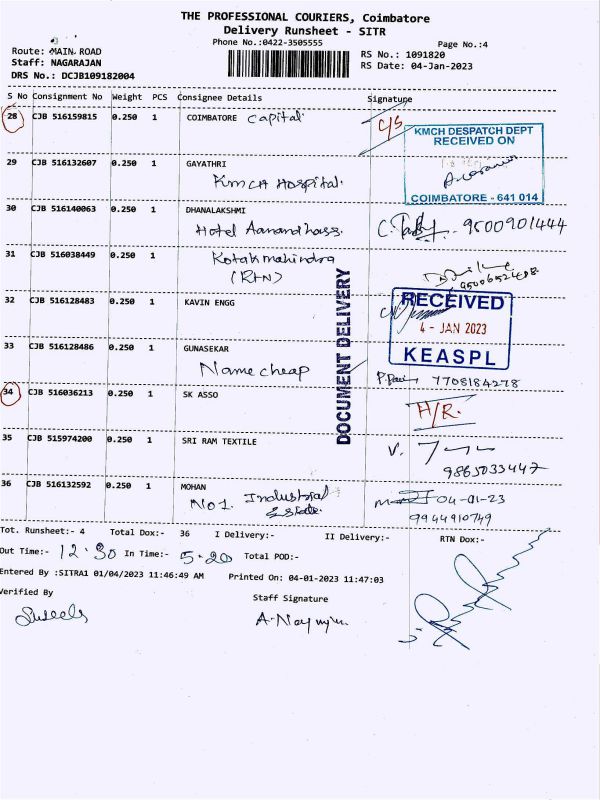 THE PROFESSIONAL COURIERS, Coimbatore
Delivery Runsheet - SITR
Phone No.:0422-3505555
Page No.:4
Route: MAIN ROAD
Staff: NAGARAJAN
DRS No.: DCJB109182004
RS No.: 1091820
RS Date: 04-Jan-2023
S No Consignment No Weight PCS Consignee Details Signature
28 CJB 516159815 0.250 1 COIMBATORE Capital C/S
KMCH DESPATCH DEPT
RECEIVED ON
COIMBATORE - 641 014
29 CJB 516132607 0.250 1 GAYATHRI
KMCH Hospital.
30 CJB 516140063 0.250 1 DHANALAKSHMI
Hotel Aanandhass. 9500901444
31 CJB 516038449 0.250 1 Kotak mahindra
(RTN)
32 CJB 516128483 0.250 1 KAVIN ENGG
RECEIVED
4 - JAN 2023
KEASPL
DOCUMENT DELIVERY
33 CJB 516128486 0.250 1 GUNASEKAR
Name cheap 7708184278
34 CJB 516036213 0.250 1 SK ASSO H/R.
35 CJB 515974200 0.250 1 SRI RAM TEXTILE
9865033447
36 CJB 516132592 0.250 1 MOHAN
No 1. Industrial Estate. 04-01-23
9944910749
Tot. Runsheet:- 4 Total Dox:- 36 I Delivery:- II Delivery:- RTN Dox:-
Out Time:- 12.30 In Time:- 5-20 Total POD:-
Entered By :SITRA1 01/04/2023 11:46:49 AM Printed On: 04-01-2023 11:47:03
Verified By Staff Signature